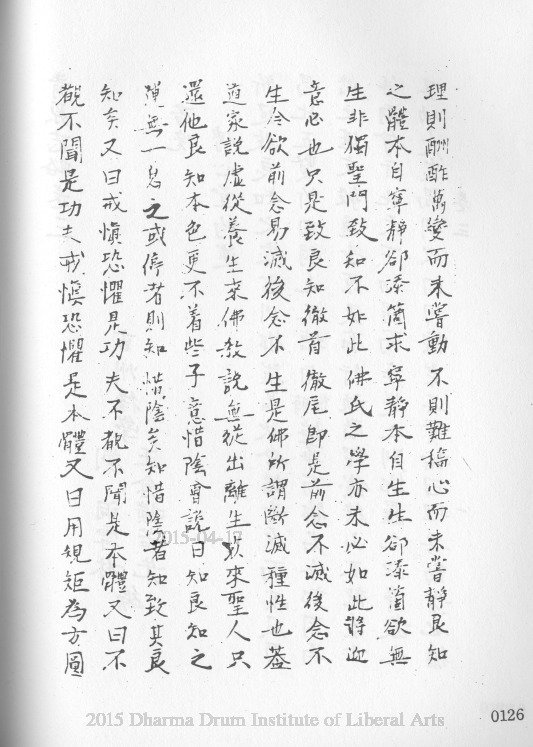 理則酬酢萬變而未嘗動不則難槁心而未嘗靜良知
之體本自寧靜卻添箇求寧靜本自生生卻添箇欲無
生非獨聖門致知不如此佛氏之學亦未必如此將迎
意必也只是致良知徹首徹尾即是前念不滅後念不
生今欲前念易滅後念不生是佛所謂斷滅種性也蓋
道家說虛從養生來佛教說無從出離生死來聖人只
還他良知本色更不着些子意惜陰會說曰知良知之
運無一息之或停者則知惜陰矣知惜陰者知致其良
知矣又曰戒慎恐懼是功夫不覩不聞是本體又曰不
觀不聞是功夫戒慎恐懼是本體又曰用規矩為方圓
2015-04-17
0126
2015 Dharma Drum Institute of Liberal Arts